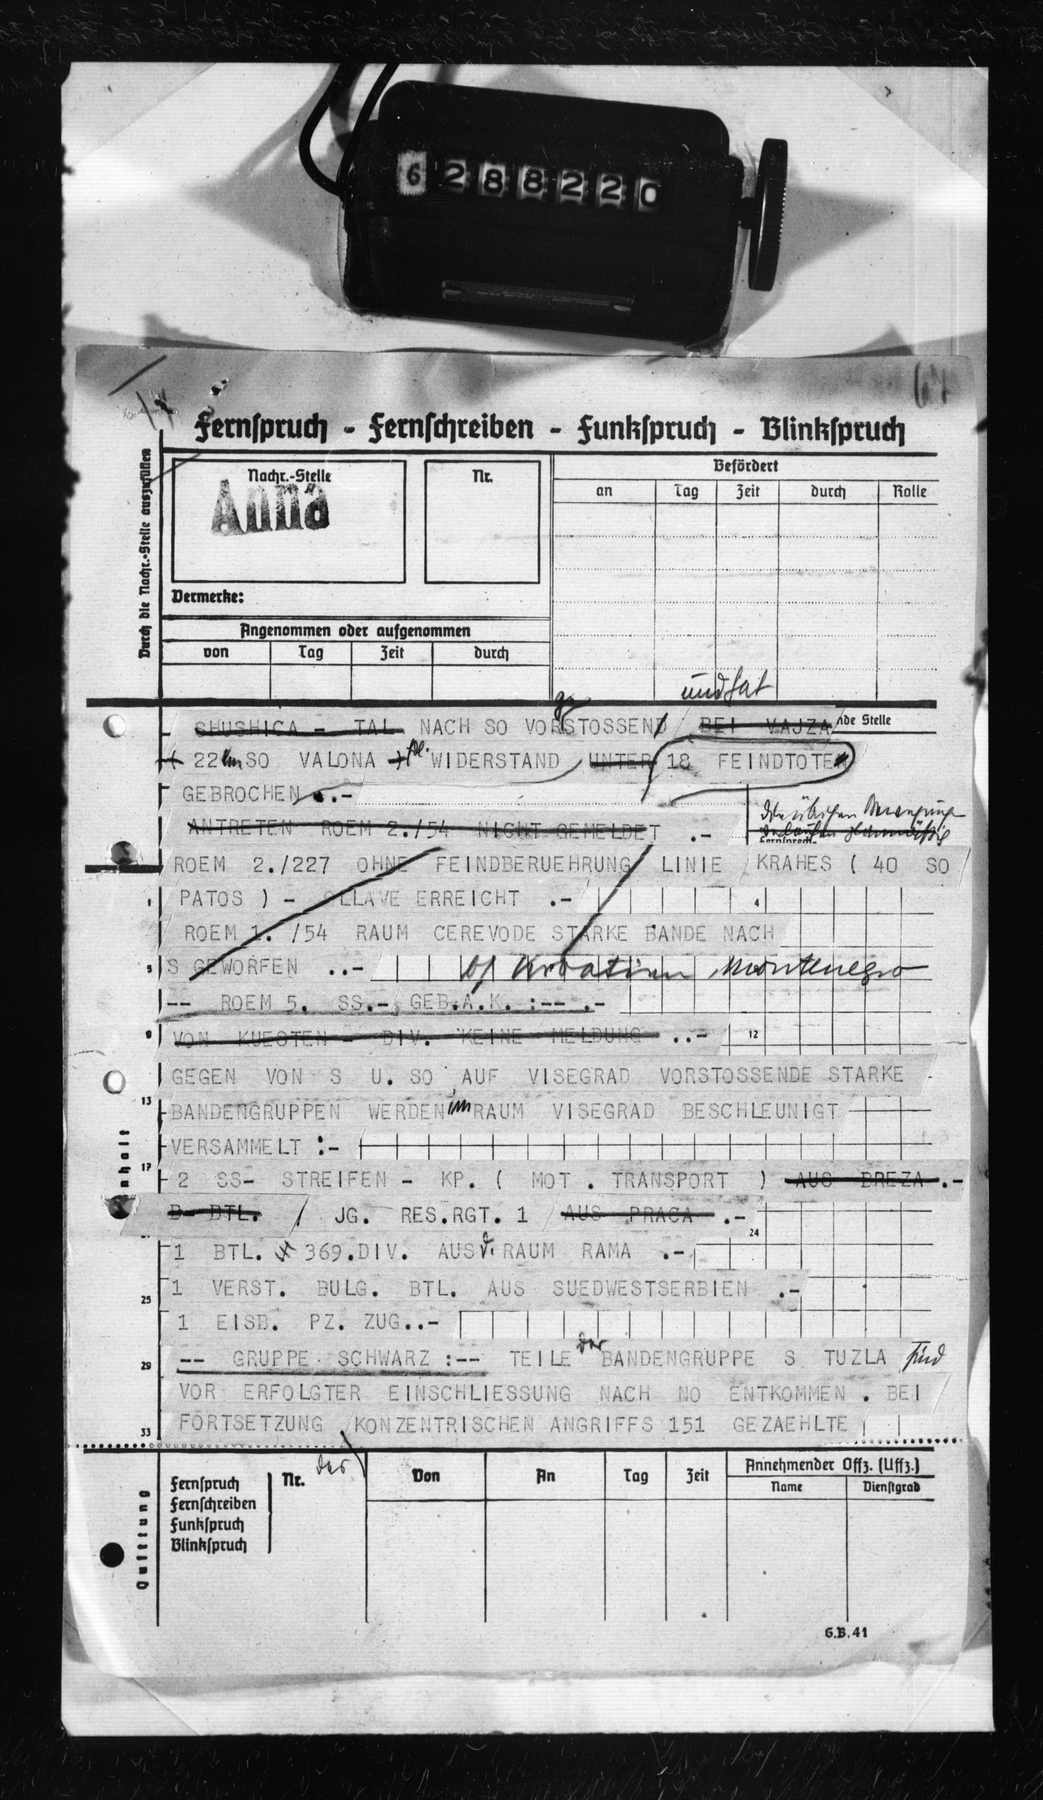 6288220
67
Fernspruch - Fernschreiben - Funkspruch - Blinkspruch
Durch die Nachr.-Stelle auszufüllen
Nachr.-Stelle
Anna
Nr.
Befördert
an Tag Zeit durch Rolle
Vermerke:
Angenommen oder aufgenommen
von Tag Zeit durch
und hat
SHUSHICA - TAL NACH SO VORSTOSSEND BEI VAJZA
nde Stelle
ge
( 22 km SO VALONA ) fdl. WIDERSTAND UNTER 18 FEINDTOTEN
GEBROCHEN ..-
die übrigen Bewegungen
ANTRETEN ROEM 2./54 NICHT GEMELDET .-
verlaufen planmäßig
ROEM 2./227 OHNE FEINDBERUEHRUNG LINIE KRAHES ( 40 SO
PATOS ) - LLAVE ERREICHT .-
ROEM 1. /54 RAUM CEREVODE STARKE BANDE NACH
S GEWORFEN ..-
b) Kroatien, Montenegro
-- ROEM 5. SS.- GEB.A.K. :-- .-
VON KUESTEN - DIV. KEINE MELDUNG ..-
GEGEN VON S U. SO AUF VISEGRAD VORSTOSSENDE STARKE
BANDENGRUPPEN WERDEN im RAUM VISEGRAD BESCHLEUNIGT
VERSAMMELT :-
2 SS- STREIFEN - KP. ( MOT . TRANSPORT ) AUS BREZA .-
B- BTL. / JG. RES.RGT. 1 AUS PRACA .-
1 BTL. 369.DIV. AUS d. RAUM RAMA .-
1 VERST. BULG. BTL. AUS SUEDWESTSERBIEN .-
1 EISB. PZ. ZUG..-
-- GRUPPE SCHWARZ :-- TEILE der BANDENGRUPPE S TUZLA sind
VOR ERFOLGTER EINSCHLIESSUNG NACH NO ENTKOMMEN . BEI
FORTSETZUNG KONZENTRISCHEN ANGRIFFS 151 GEZAEHLTE
des
1
4
5
9
12
13
17
24
25
29
33
nhalt
Quittung
Fernspruch
Fernschreiben
Funkspruch
Blinkspruch
Nr.
Von An Tag Zeit
Annehmender Offz. (Uffz.)
Name Dienstgrad
G.B.41